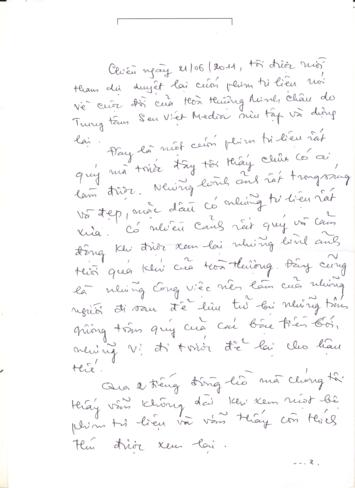 Chiều ngày 21/06/2011, tôi được mời
tham dự duyệt lại cuốn phim tư liệu nói
về cuộc đời của Hoà thượng Minh Châu do
Trung tâm Sen Việt Media sưu tập và dựng
lại.
Đây là một cuốn phim tư liệu rất
quý mà trước đây tôi thấy chưa có ai
làm được. Những hình ảnh rất trong sáng
và đẹp, mặc dầu có những tư liệu rất
xưa. Có nhiều cảnh rất quý và cảm
động khi được xem lại những hình ảnh
thời quá khứ của Hoà thượng. Đây cũng
là những công việc nên làm của những
người đi sau để lưu trữ lại những tấm
gương trân quý của các bậc tiền bối,
những vị đi trước để lại cho hậu
thế.
Qua 2 tiếng đồng hồ mà chúng tôi
thấy vẫn không dài khi xem một bộ
phim tư liệu và vẫn thấy còn thích
thú được xem lại.
...2.